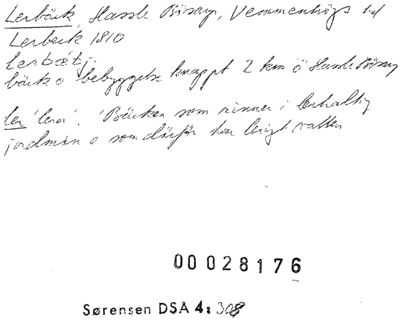 Lerbäck, Hassle Bösarp, Vemmenhögs hd
Lerbeck 1810
lerbätj.
bäck o bebyggelse knappt 2 km ö Hassle Bösarp
ler 'lera'. 'Bäcken som rinner i lerhaltig
jordmån o som därför har lerigt vatten
00028176
Sørensen DSA 4: 308